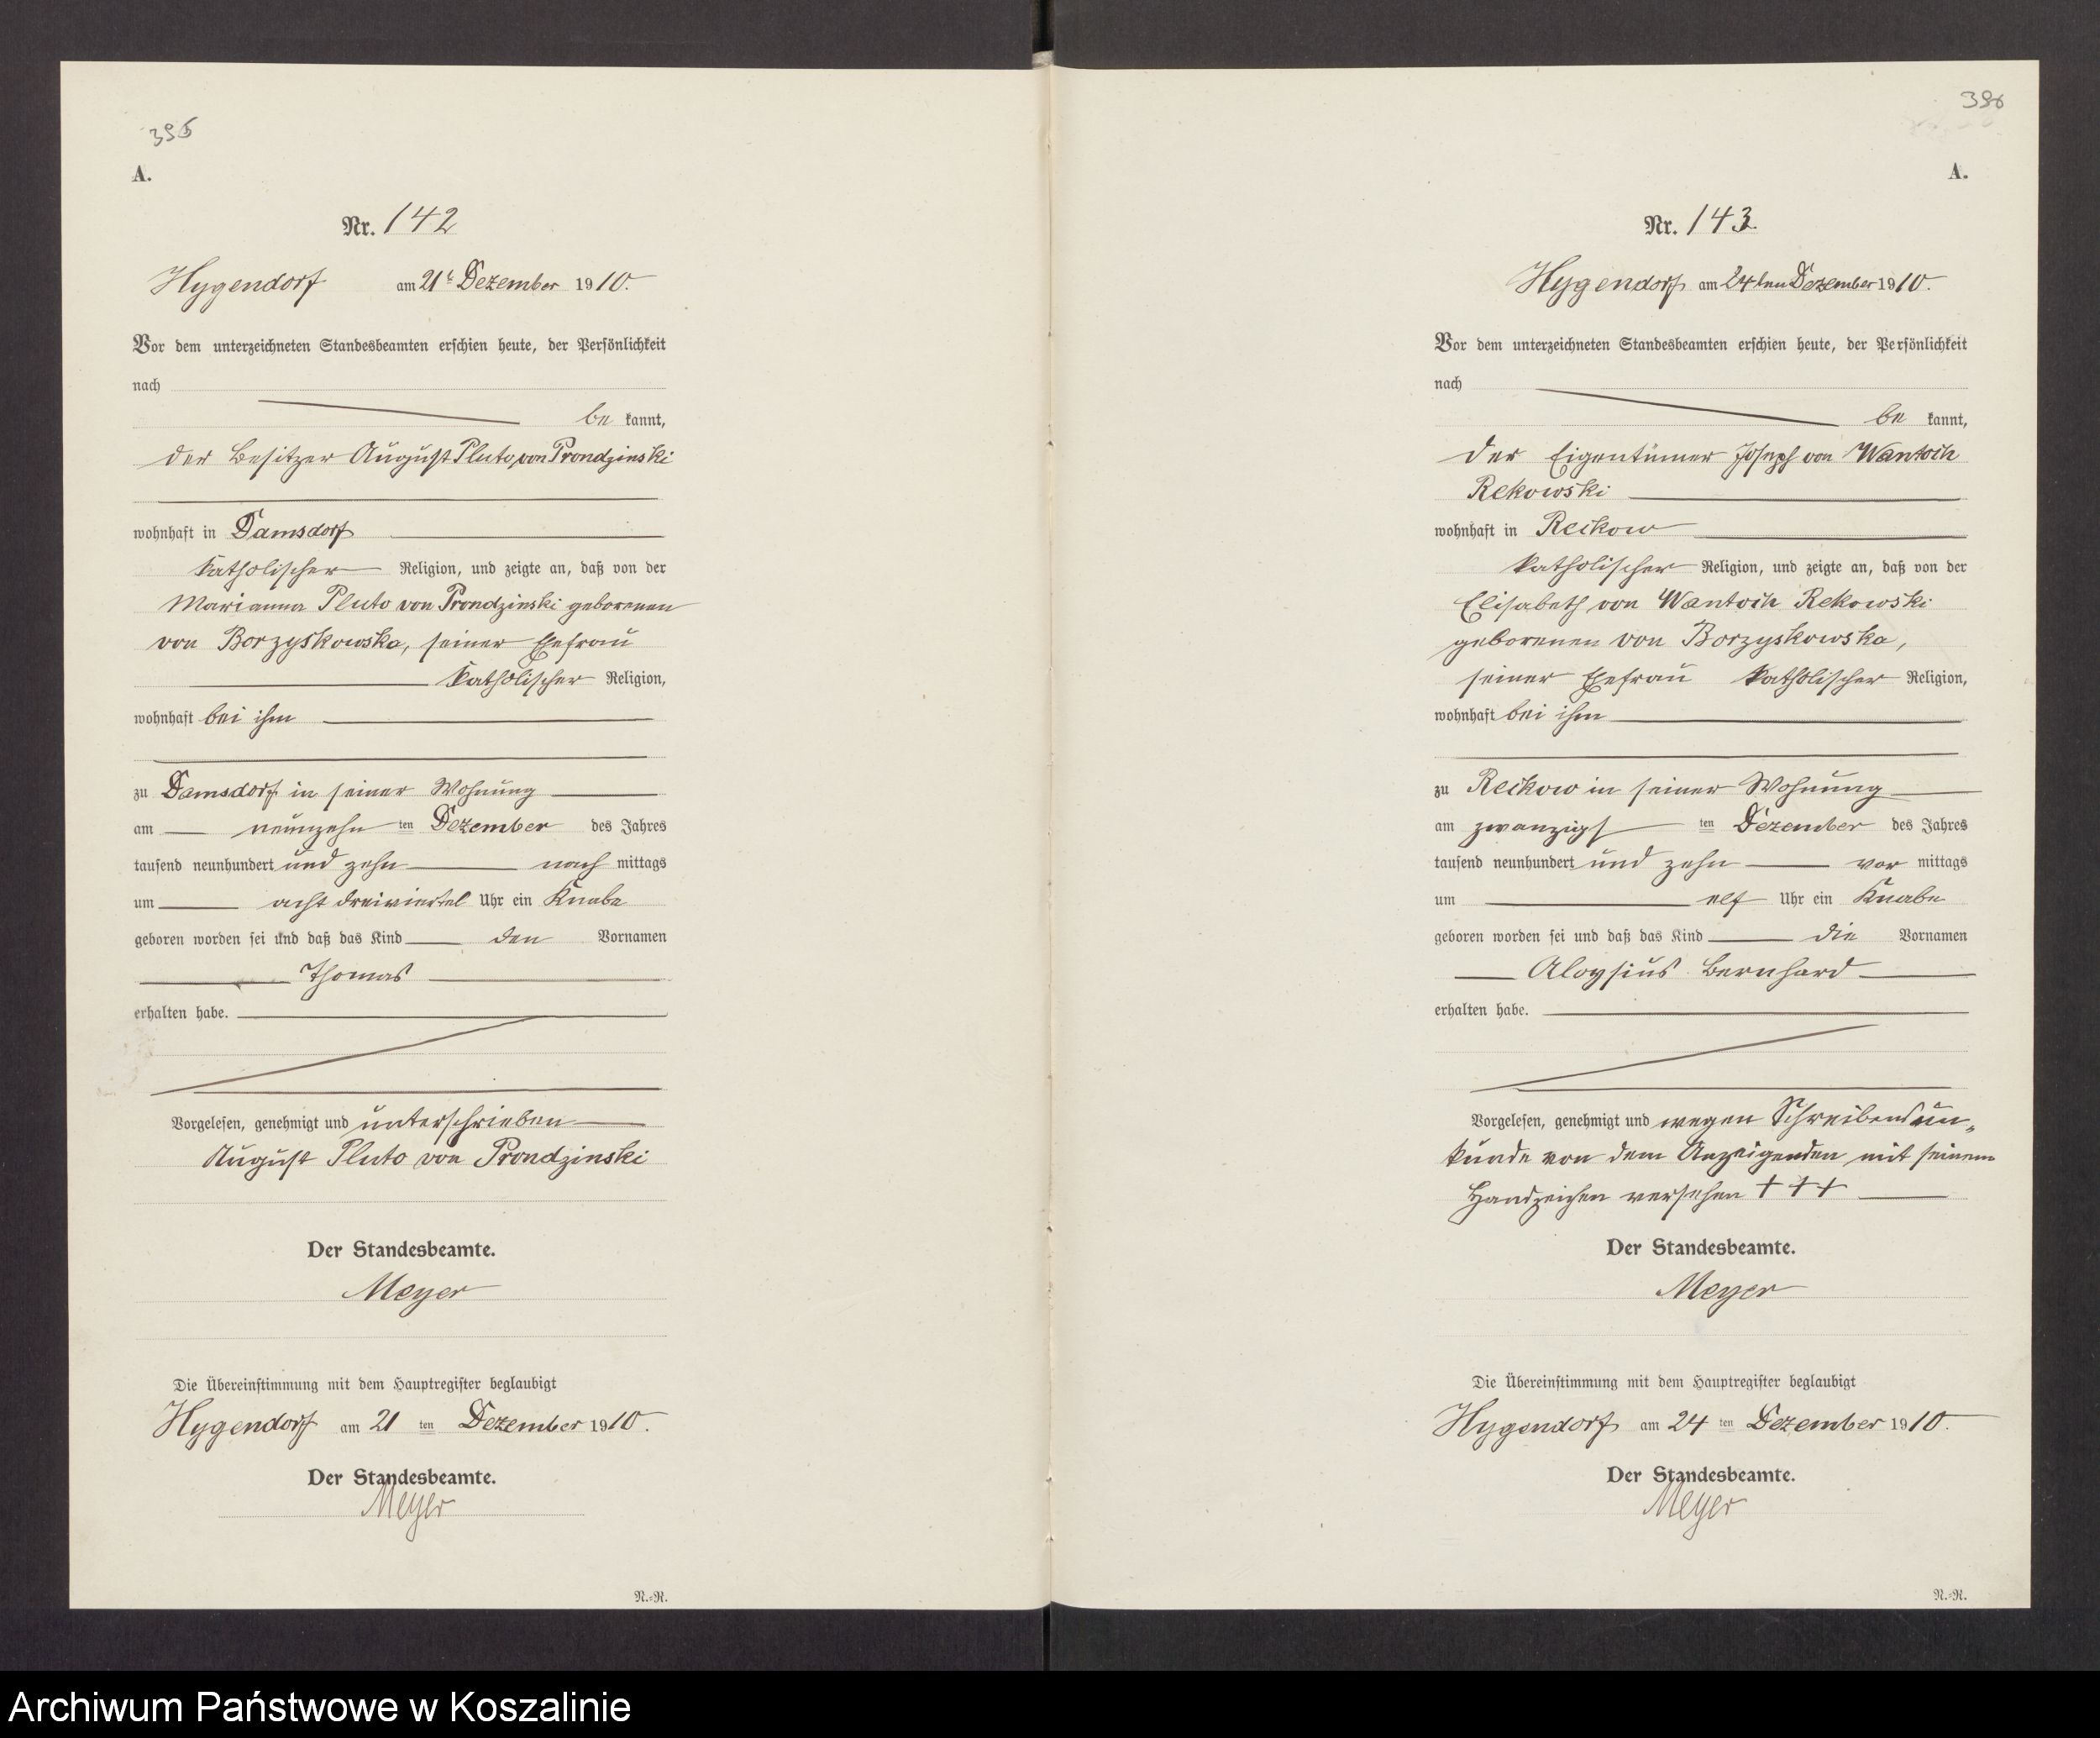 395
A.
Nr. 142
Hygendorf am 21t Dezember 1910.
Vor dem unterzeichneten Standesbeamten erschien heute, der Persönlichkeit
nach
be kannt,
der Besitzer August Pluto von Prondzinski
wohnhaft in Damsdorf
katholischer Religion, und zeigte an, daß von der
Marianna Pluto von Prondzinski geborenen
von Borzyskowska, seiner Ehefrau
katholischer Religion,
wohnhaft bei ihm
zu Damsdorf in seiner Wohnung
am neunzehn ten Dezember des Jahres
tausend neunhundert und zehn nach mittags
um acht dreiviertel Uhr ein Knabe
geboren worden sei und daß das Kind den Vornamen
Thomas
erhalten habe.
Vorgelesen, genehmigt und unterschrieben
August Pluto von Prondzinski
Der Standesbeamte.
Meyer
Die Übereinstimmung mit dem Hauptregister beglaubigt
Hygendorf am 21 ten Dezember 1910.
Der Standesbeamte.
Meyer
N.=R.
396
A.
Nr. 143.
Hygendorf am 24ten Dezember 1910.
Vor dem unterzeichneten Standesbeamten erschien heute, der Persönlichkeit
nach
be kannt,
der Eigentümer Joseph von Wantoch
Rekowski
wohnhaft in Reckow
katholischer Religion, und zeigte an, daß von der
Elisabeth von Wantoch Rekowski
geborenen von Borzyskowska,
seiner Ehefrau katholischer Religion,
wohnhaft bei ihm
zu Reckow in seiner Wohnung
am zwanzigs ten Dezember des Jahres
tausend neunhundert und zehn vor mittags
um elf Uhr ein Knabe
geboren worden sei und daß das Kind die Vornamen
Aloysius Bernhard
erhalten habe.
Vorgelesen, genehmigt und wegen Schreibensun„
kunde von dem Anzeigenden mit seinem
Handzeichen versehen +++
Der Standesbeamte.
Meyer
Die Übereinstimmung mit dem Hauptregister beglaubigt
Hygendorf am 24 ten Dezember 1910.
Der Standesbeamte.
Meyer
N.=R.
Archiwum Państwowe w Koszalinie